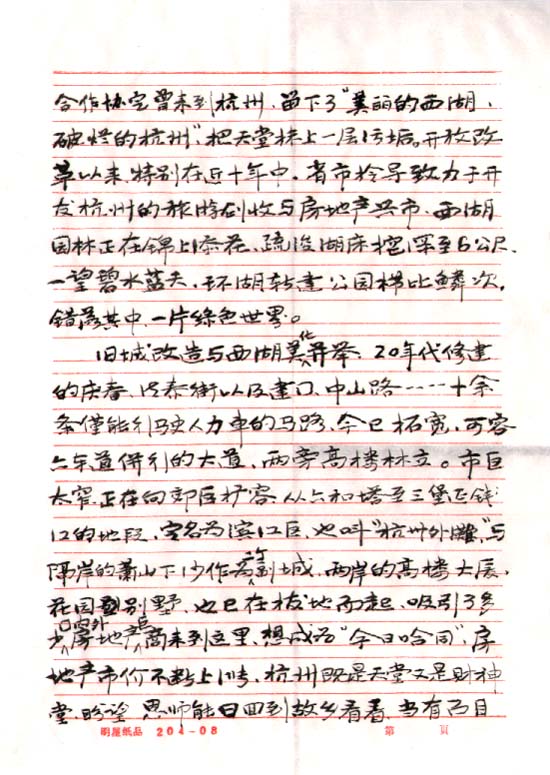 合作协定曾来到杭州，留下了"美丽的西湖，
破烂的杭州"把天堂抹上一层污垢。开放改
革以来，特别在近十年中，省市领导致力于开
发杭州的旅游创收与房地产共市，西湖
园林正在锦上添花，疏浚湖床挖深至6公尺，
一望碧水蓝天，环湖新建公园栉比鳞次，
错落其中，一片绿色世界。
旧城改造与西湖美化并举，20年代修建
的庆春、 街以及 口、中山路……十余
条仅能行驶人力车的马路，今已拓宽，可容
六车道併行的大道，两旁高楼林立。市区
太窄正在向郊区扩容，从六和塔至三堡 钱
江的地段，定名为滨江区，也叫"杭州外滩"，与
隔岸的萧山下沙作为二个副城，两岸的高楼大厦，
花园 别野，也已在拔地而起，吸引了多
少国内外房地产 商来到这里，想成为"今日哈同"，房
地产市价不断上 ，杭州既是天堂又是财神
堂，盼望 恩师能日回到故乡看看，当有
明星纸品 204-08 第 页